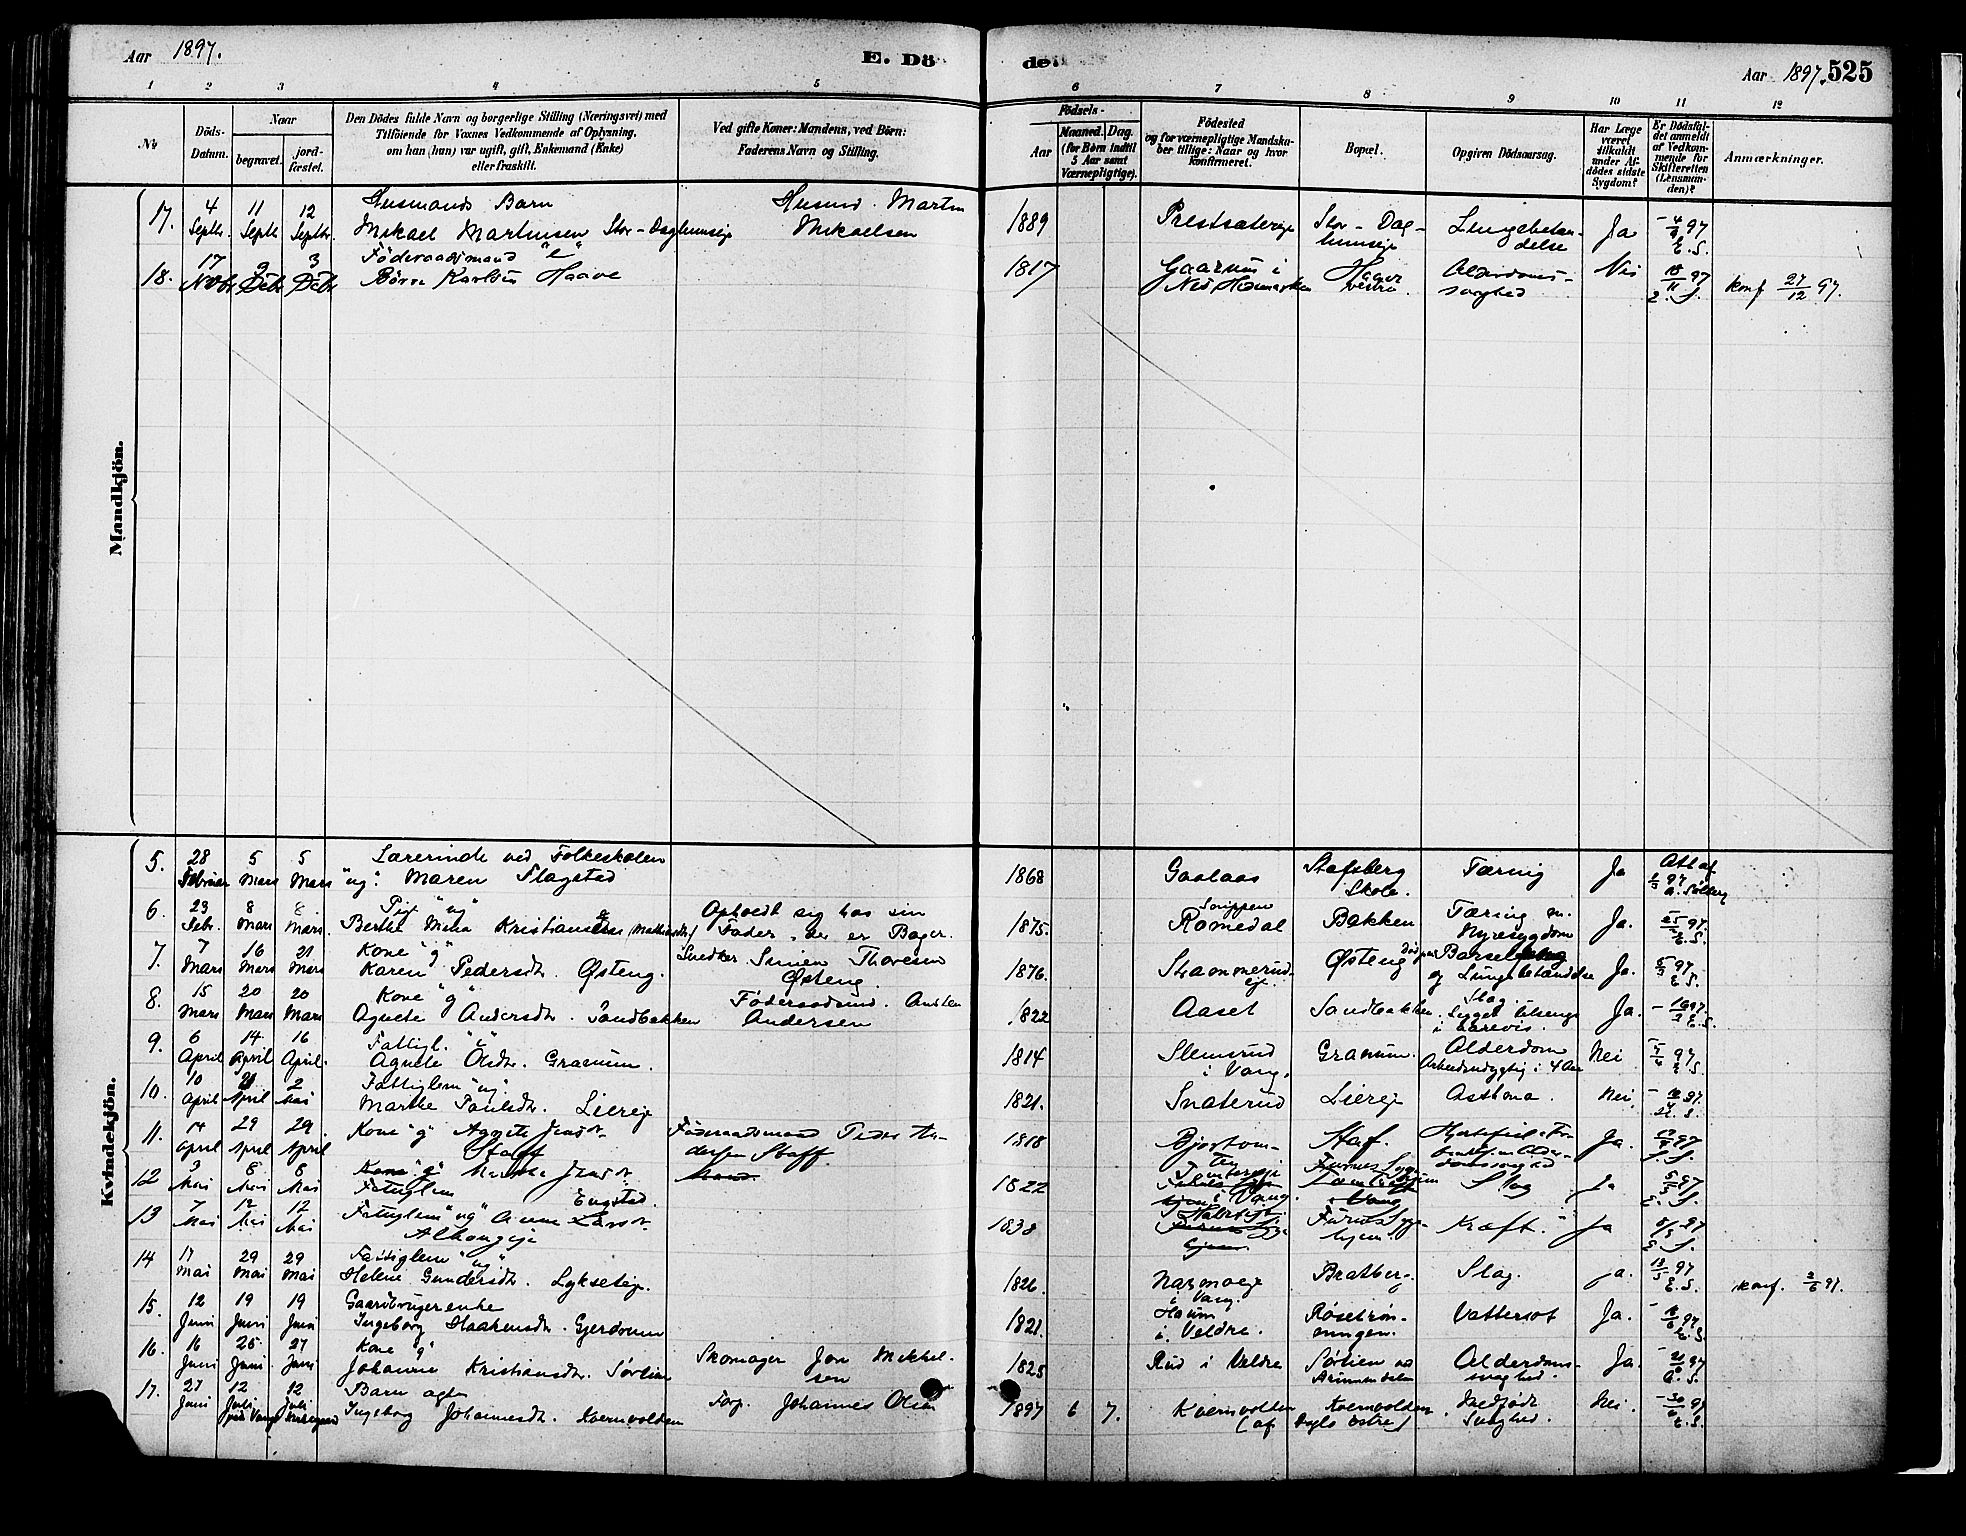 Aar 1897.
E. Dö
de
Aar 1897. 525
1 2 3 4 5 6 7 8 9 10 11 12
№
Döds-Datum.
Naar
begravet.
jord-fæstet.
Den Dödes fulde Navn og borgerlige Stilling (Næringsvei) med
Tilföiende for Voxnes Vedkommende af Oplysning,
om han (hun) var ugift, gift, Enkemand (Enke)
eller fraskilt.
Ved gifte Koner: Mandens, ved Börn:
Faderens Navn og Stilling.
Födsels-
Aar
Maaned. Dag.
(for Börn indtil
5 Aar samt
Værnepligtige).
Födested
og for værnepligtige Mandska-
ber tillige: Naar og hvor
konfirmeret.
Bopæl.
Opgiven Dödsaarsag.
Har Læge
været
tilkaldt
under Af-
dödes sidste
Sygdom?
Er Dödsfal-
det anmeldt
af Vedkom-
mende for
Skifteretten
(Lensman-
den)?
Anmærkninger.
Mandkjön.
17. 4 Septbr. 11 Septb 12 Septbr. Husmands Barn Mikael Martinsen Stor-Daglumseje Husmd. Martin Mikaelsen 1889 Prestsætereje Stor-Daglumseje Lungebetændelse Ja 4/9 97 E.S.
18. 17 Novbr 3 Debr 3 Debr Föderaadsmand "e" Börre Karlsen Haave 1817 Gaarum i Nes Hedemarken Haave vestre Alderdomssvaghed Nei 18/11 97 E.S. Konf 27/12 97.
Kvindekjön.
5. 28 Februar 5 Mars 5 Mars Lærerinde ved Folkeskolen "ug." Maren Slagstad 1868 Gaalaas Stafsberg Skole. Tæring Ja 97 A. Solberg
6. 23 Febr. 8 Mars 8 Mars. Pige "ug" Berthe Mina Kristiansen Opholdt sig hos sin Fader, der er Bager. 1875. Romedal Bakken Tæring m. Nyresygdom Ja. 25/2 97. E.S.
7. 7 Mars 16 Mars 21 Mars Kone "g" Karen Pedersdtr. Østeng. Snedker Simen Thoresen Østeng. 1876. Stammerud eje. Østeng Barselseng og Lungebetændelse Ja. 97 E.S.
8. 15 Mars 20 Mars 20 Mars Kone "g" Agnete Andersdtr. Sandbakken Föderaadsmd. Andersen 1822 Aaset Sandbakken Slag. Ligget tilsengs i Ja. 97 E.S.
9. 6 April 14 April 16 April. Fattigl. "e" Agnete Olsdtr. Granum. 1814 Slemsrud i Vang. Granum. Alderdom Arbeidsudygtig i 4 Aar Nei 7/4 97 E.S.
10. 10 April 21 April 2 Mai Fattiglem "ug" Marthe Paulsdtr. Liereje 1821. Snaterud Liereje Asthma. Nei. 97 E.S.
11. 14 April 29 April 29. April Kone "g" Agnete Jensdtr Staff Föderaadsmand Peder Andersen Staff. 1818 Staf. Hjertefeil Alderdomssvaghed Ja. 97
12 3 Mai 8 Mai 8 Mai Kone "g" Jensdtr Fattiglem Engstad. 1822 i Vang. Furnes Sygehjem Slag Ja 5/5 97 E.S.
13 7 Mai 12 Mai 12 Mai Fattiglem "ug" Anne Larsdtr Alhaugeje 1838 Furnes Sygehjem. Kræft. Ja 8/5 97 E.S.
14 17 Mai 29 Mai 29 Mai Fattiglem "ug" Helene Gundersdtr. Lykseteje. 1826. Narmoeje i Vang. Bratberg. Slag. ja. 97 E.S. Konf. 2/6 97.
15. 12 Juni 19 Juni 19 Juni Gaardbrugerenke Ingeborg Haakensdtr. Gjerdrum 1821. Houm i Veldre. Røsetrønningen. Vattersot Ja. 97 E.S.
16. 16 Juni 25 Juni 27 Juni Kone "g" Johanne Kristiansdtr. Sørlien Skomager Jon Mikkelsen 1825 Rud i Veldre Sørlien Alderdomssvaghed. Ja. 97
17. 27 Juni 12 Juli 12 Juli Barn ægte Ingeborg Johannesdtr. Kvernvolden Forp. Johannes Olsen 1897 6 7. Kvernvolden Kvernvolden (af østre) Medfødt Svaghed. Nei. 30/6 97 E.S.